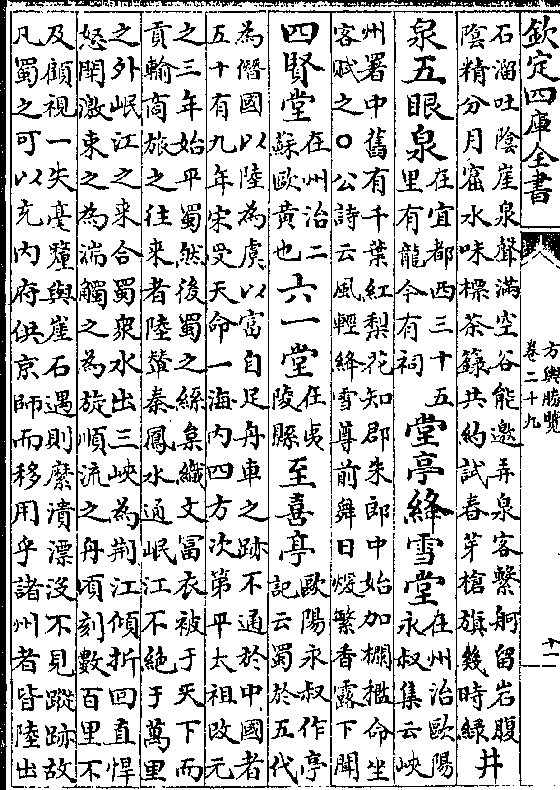 欽定四庫全書
方輿勝覽
卷二十九
十一
石溜吐陰崖泉聲滿空谷能邀弄泉客繫舸留岩腹
陰精分月窟水味標茶籙共約試春芽槍旗幾時緑
井
泉五眼泉
在宜都西三十五
里有龍今有祠
堂亭絳雪堂
在州治歐陽
永叔集云峽
州署中舊有千葉紅梨花知郡朱郎中始加欄檻命坐
客賦之○公詩云風輕絳雪尊前舞日煖繁香露下聞
四賢堂
在州治二
蘇歐黄也
六一堂
在夷
陵縣
至喜亭
歐陽永叔作亭
記云蜀於五代
為僭國以陸為虞以富自足舟車之跡不通於中國者
五十有九年宋受天命一海内四方次第平太祖改元
之三年始平蜀然後蜀之絲枲織文冨衣被于天下而
貢輸商旅之往來者陸輦秦鳳水通岷江不絶于萬里
之外岷江之來合蜀衆水出三峽為荆江傾折回直悍
怒鬭激束之為湍觸之為旋順流之舟頃刻數百里不
及顧視一失毫釐與崖石遇則糜潰漂没不見蹤跡故
凡蜀之可以充内府供京師而移用乎諸州者皆陸出